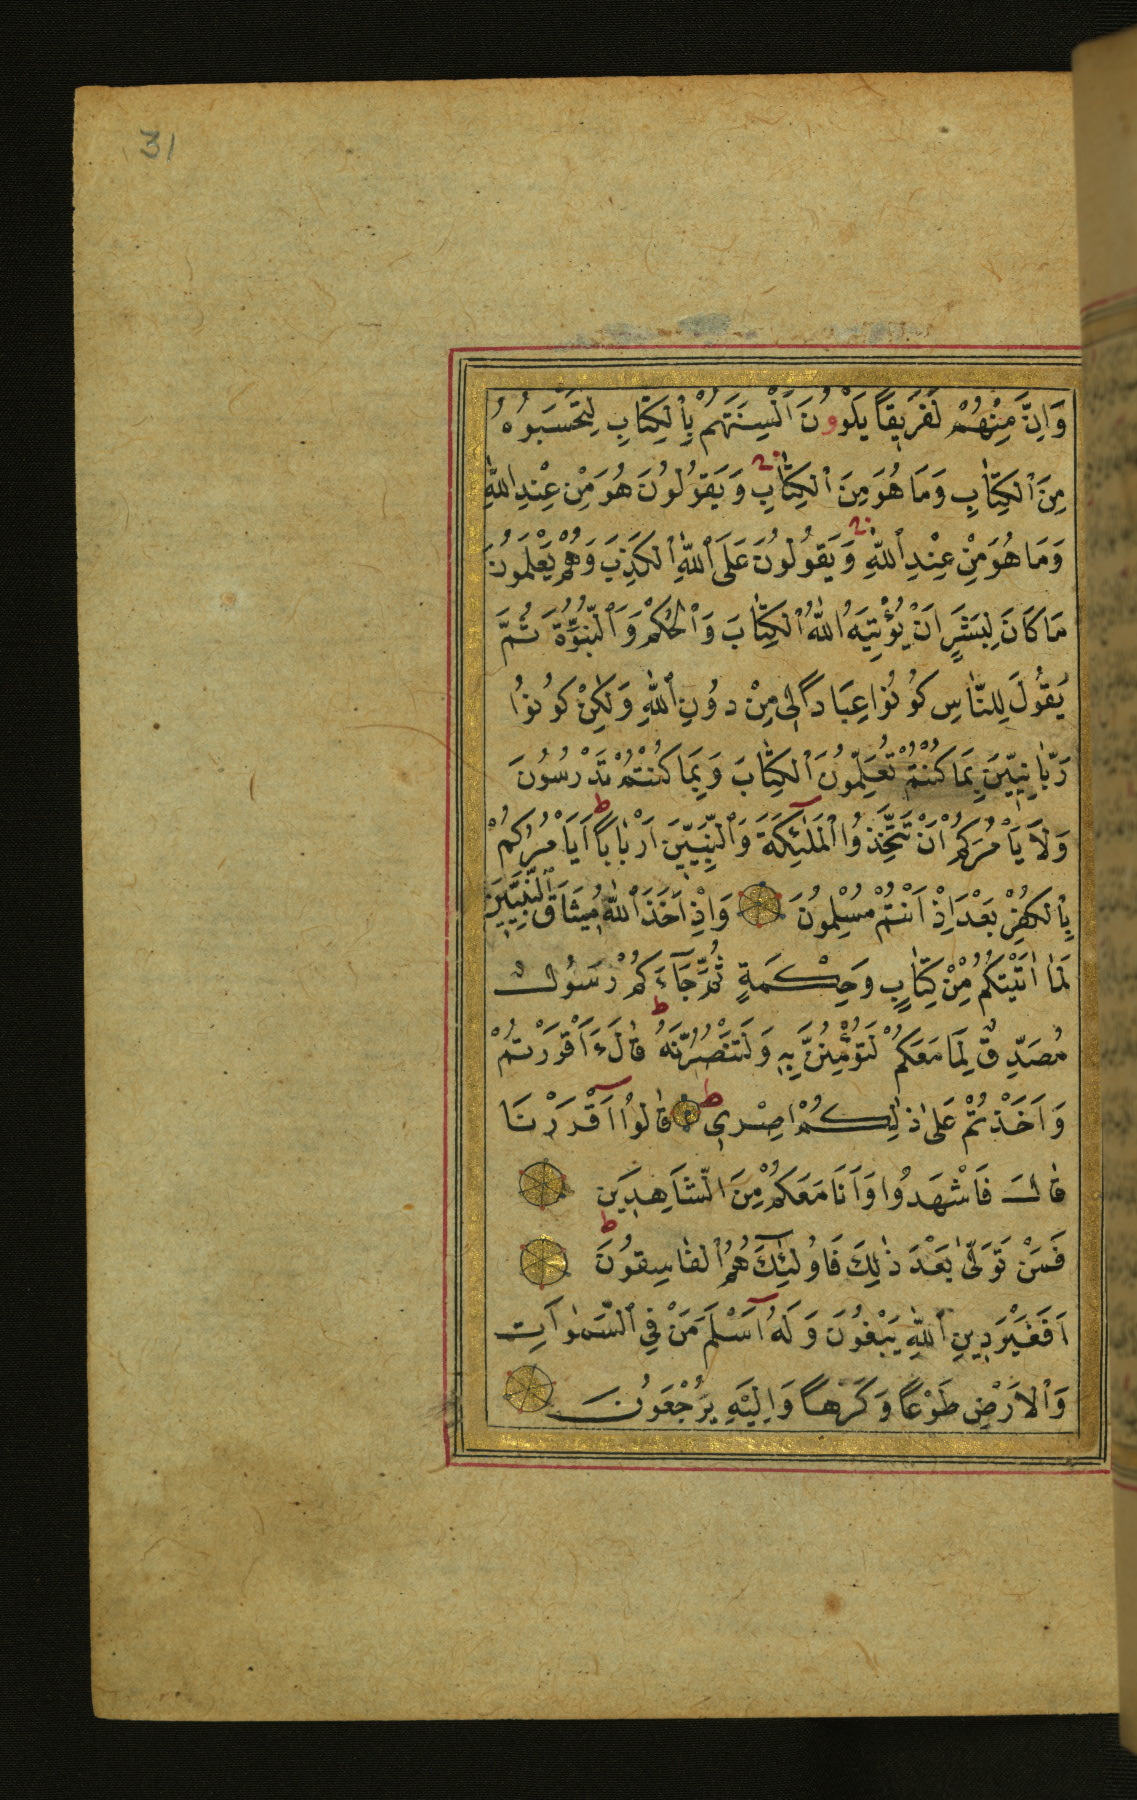 31
وَاِنَّ مِنْهُمْ لَفَرِيقًا يَلْوُونَ اَلْسِنَتَهُمْ بِالْكِتَابِ لِتَحْسَبُوهُ
مِنَ الْكِتَابِ وَمَا هُوَ مِنَ الْكِتَابِ وَيَقُولُونَ هُوَ مِنْ عِنْدِ اللّٰهِ
وَمَا هُوَ مِنْ عِنْدِ اللّٰهِ وَيَقُولُونَ عَلَى اللّٰهِ الْكَذِبَ وَهُمْ يَعْلَمُونَ
مَا كَانَ لِبَشَرٍ اَنْ يُؤْتِيَهُ اللّٰهُ الْكِتَابَ وَالْحُكْمَ وَالنُّبُوَّةَ ثُمَّ
يَقُولَ لِلنَّاسِ كُونُوا عِبَادًا لِي مِنْ دُونِ اللّٰهِ وَلٰكِنْ كُونُوا
رَبَّانِيِّينَ بِمَا كُنْتُمْ تُعَلِّمُونَ الْكِتَابَ وَبِمَا كُنْتُمْ تَدْرُسُونَ
وَلَا يَاْمُرَكُمْ اَنْ تَتَّخِذُوا الْمَلٰئِكَةَ وَالنَّبِيِّينَ اَرْبَابًا ط اَيَاْمُرُكُمْ
بِالْكُفْرِ بَعْدَ اِذْ اَنْتُمْ مُسْلِمُونَ وَاِذْ اَخَذَ اللّٰهُ مِيثَاقَ النَّبِيِّينَ
لَمَا اٰتَيْتُكُمْ مِنْ كِتَابٍ وَحِكْمَةٍ ثُمَّ جَآءَكُمْ رَسُولٌ
مُصَدِّقٌ لِمَا مَعَكُمْ لَتُؤْمِنُنَّ بِهِ وَلَتَنْصُرُنَّهُ ط قَالَ ءَاَقْرَرْتُمْ
وَاَخَذْتُمْ عَلٰى ذٰلِكُمْ اِصْرِي ط قَالُوا اَقْرَرْنَا
قَالَ فَاشْهَدُوا وَاَنَا مَعَكُمْ مِنَ الشَّاهِدِينَ
فَمَنْ تَوَلّٰى بَعْدَ ذٰلِكَ فَاُولٰئِكَ هُمُ الْفَاسِقُونَ ط
اَفَغَيْرَ دِينِ اللّٰهِ يَبْغُونَ وَلَهُ اَسْلَمَ مَنْ فِي السَّمٰوَاتِ
وَالْاَرْضِ طَوْعًا وَكَرْهًا وَاِلَيْهِ يُرْجَعُونَ